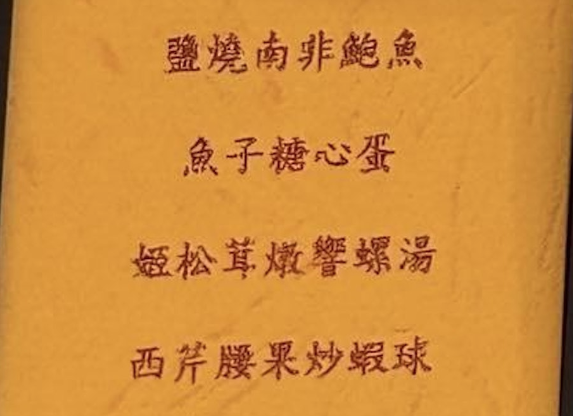 鹽燒南非鮑魚
魚子糖心蛋
姬松茸燉響螺湯
西芹腰果炒蝦球